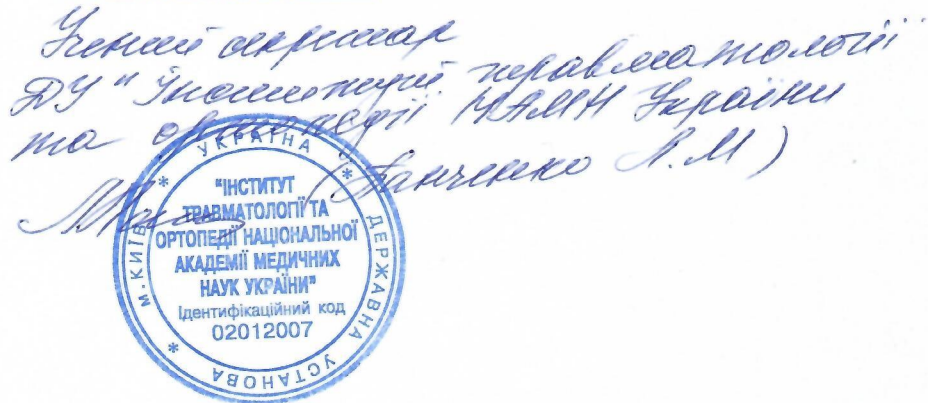 Учений секретар
ДУ "Інституту травматології
та ортопедії НАМН України
(Панченко Л.М)
* УКРАЇНА * ДЕРЖАВНА УСТАНОВА * м.КИЇВ
"ІНСТИТУТ
ТРАВМАТОЛОГІЇ ТА
ОРТОПЕДІЇ НАЦІОНАЛЬНОЇ
АКАДЕМІЇ МЕДИЧНИХ
НАУК УКРАЇНИ"
Ідентифікаційний код
02012007